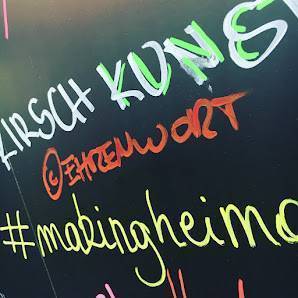 KIRSCH KUNST
© EHRENWORT
#makingheima